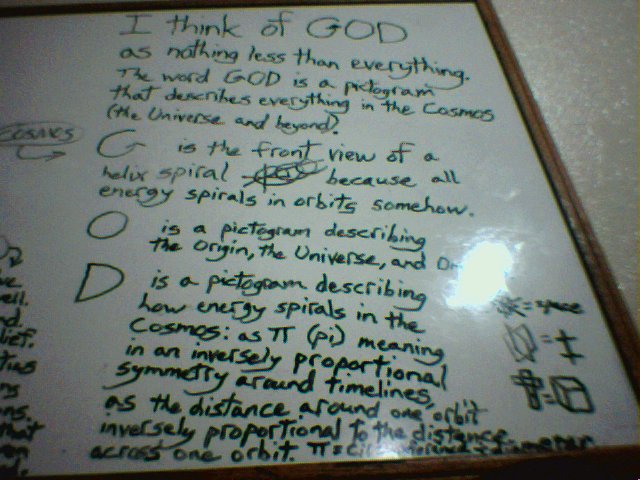 I think of GOD
as nothing less than everything.
The word GOD is a pictogram
that describes everything in the Cosmos
(the Universe and beyond).
COSMOS
G is the front view of a
helix spiral because all
energy spirals in orbits somehow.
O is a pictogram describing
the Origin, the Universe, and
D is a pictogram describing
how energy spirals in the
Cosmos: as π (pi) meaning
in an inversely proportional
symmetry around timelines,
as the distance around one orbit
inversely proportional to the distance
across one orbit. π = circumference ÷ diameter
= space